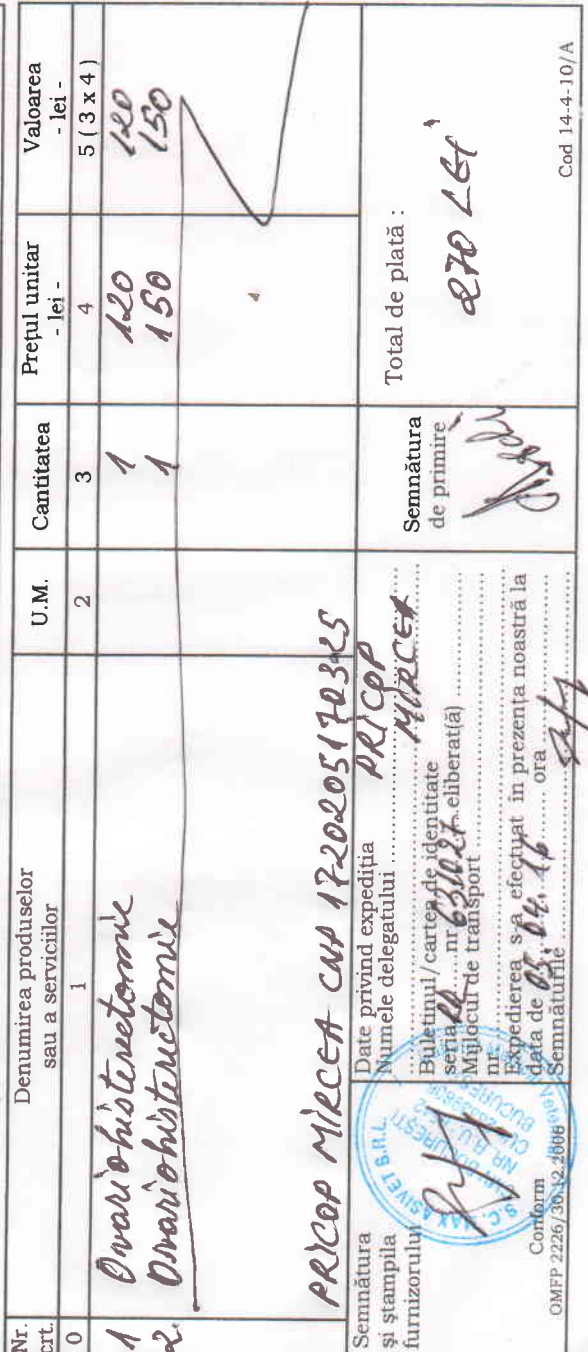 Nr. crt. Denumirea produselor sau a serviciilor U.M. Cantitatea Prețul unitar - lei - Valoarea - lei -
0 1 2 3 4 5 ( 3 x 4 )
1 Ovariohisterectomie 1 120 120
2. Ovariohisterectomie 1 150 150
PRICOP MIRCEA CNP
Semnătura și ștampila furnizorului
S.C. MAX ASIVET S.R.L.
Conform
OMFP 2226/30.12.2006
Date privind expediția
Numele delegatului PRICOP
MIRCEA
Buletinul/cartea de identitate
seria nr. eliberat(ă)
Mijlocul de transport
nr.
Expedierea s-a efectuat în prezența noastră la
data de 05.04.16 ora
Semnăturile
Semnătura
de primire
Total de plată :
270 LEI
Cod 14-4-10/A